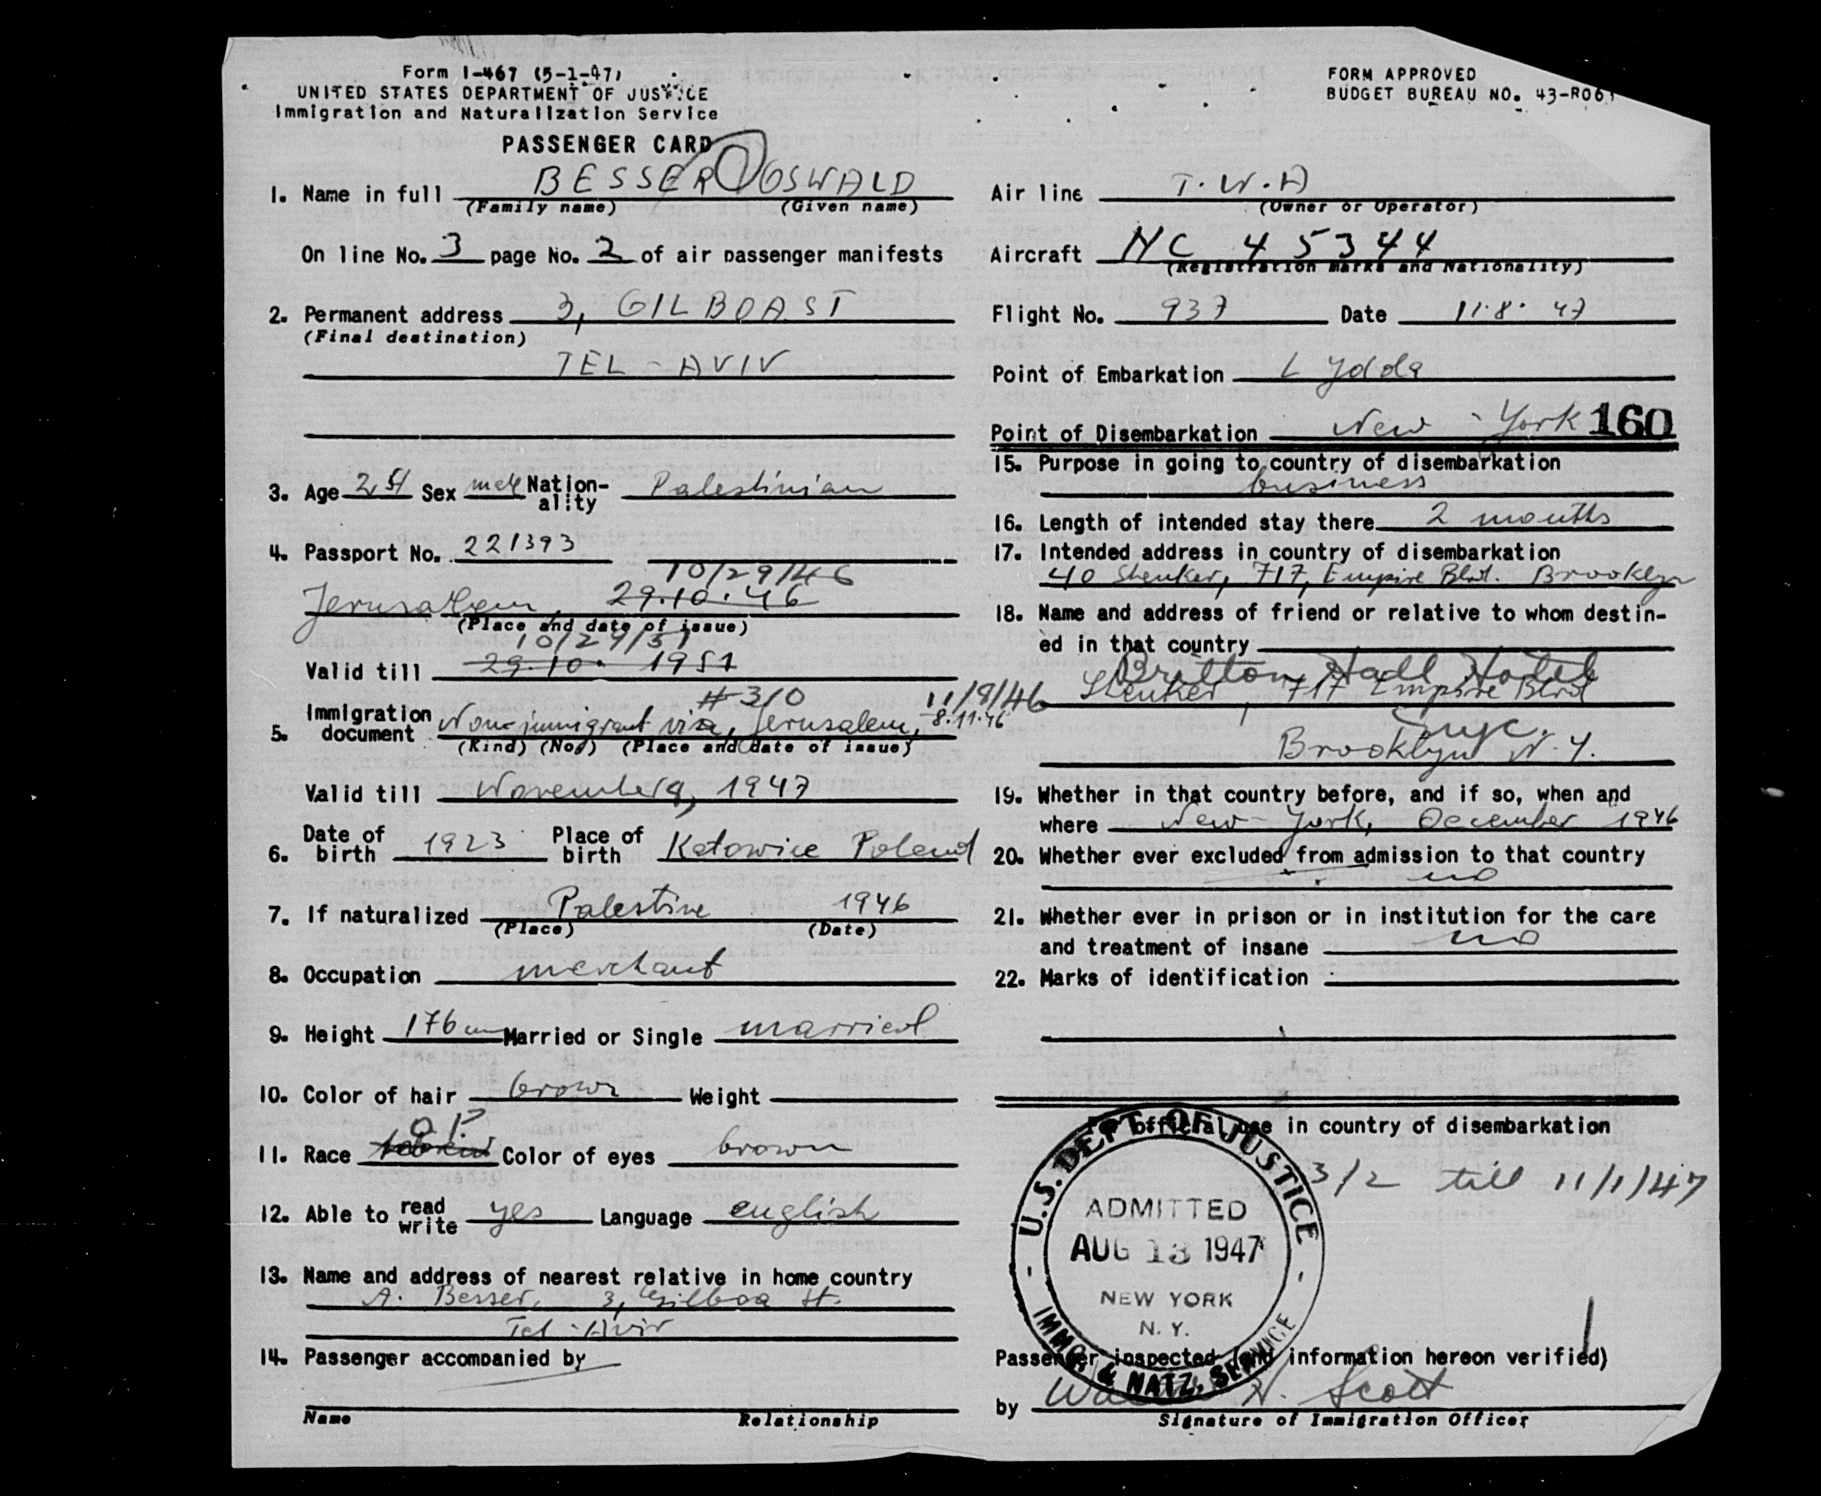 Form I-467 (5-1-47)
UNITED STATES DEPARTMENT OF JUSTICE
Immigration and Naturalization Service
PASSENGER CARD
FORM APPROVED
BUDGET BUREAU NO. 43-R06
1. Name in full BESSER OSWALD
(Family name) (Given name)
On line No. 3 page No. 2 of air passenger manifests
2. Permanent address 3, GILBOA ST
(Final destination)
TEL-AVIV
3. Age 24 Sex male Nation-ality Palestinian
4. Passport No. 221393
10/29/46
Jerusalem, 29.10.46
(Place and date of issue)
10/29/51
Valid till 29.10. 1951
#310 11/8/46
5. Immigration document Non-immigrant visa, Jerusalem, 8.11.46
(Kind) (No.) (Place and date of issue)
Valid till November 9, 1947
6. Date of birth 1923 Place of birth Katowice Poland
7. If naturalized Palestine 1946
(Place) (Date)
8. Occupation merchant
9. Height 176 cm Married or Single married
10. Color of hair brown Weight
11. Race Color of eyes brown
12. Able to read write yes Language english
13. Name and address of nearest relative in home country
A. Besser, 3, Gilboa St.
Tel-Aviv
14. Passenger accompanied by
Name Relationship
Air line T.W.A
(Owner or Operator)
Aircraft NC 45344
(Registration marks and Nationality)
Flight No. 937 Date 11.8.47
Point of Embarkation Lydda
Point of Disembarkation New-York 160
15. Purpose in going to country of disembarkation
business
16. Length of intended stay there 2 months
17. Intended address in country of disembarkation
40 Shenker, 717, Empire Blvd. Brooklyn
18. Name and address of friend or relative to whom destin-
ed in that country
Britton Hall Hotel
Shenker, 717 Empire Blvd
nyc.
Brooklyn N.Y.
19. Whether in that country before, and if so, when and
where New-York, December 1946
20. Whether ever excluded from admission to that country
no
21. Whether ever in prison or in institution for the care
and treatment of insane no
22. Marks of identification
official use in country of disembarkation
3/2 till 11/1/47
U.S. DEPT. OF JUSTICE
ADMITTED
AUG 13 1947
NEW YORK
N.Y.
IMMG. & NATZ. SERVICE
Passenger inspected (and information hereon verified)
by H. Scott
Signature of Immigration Officer